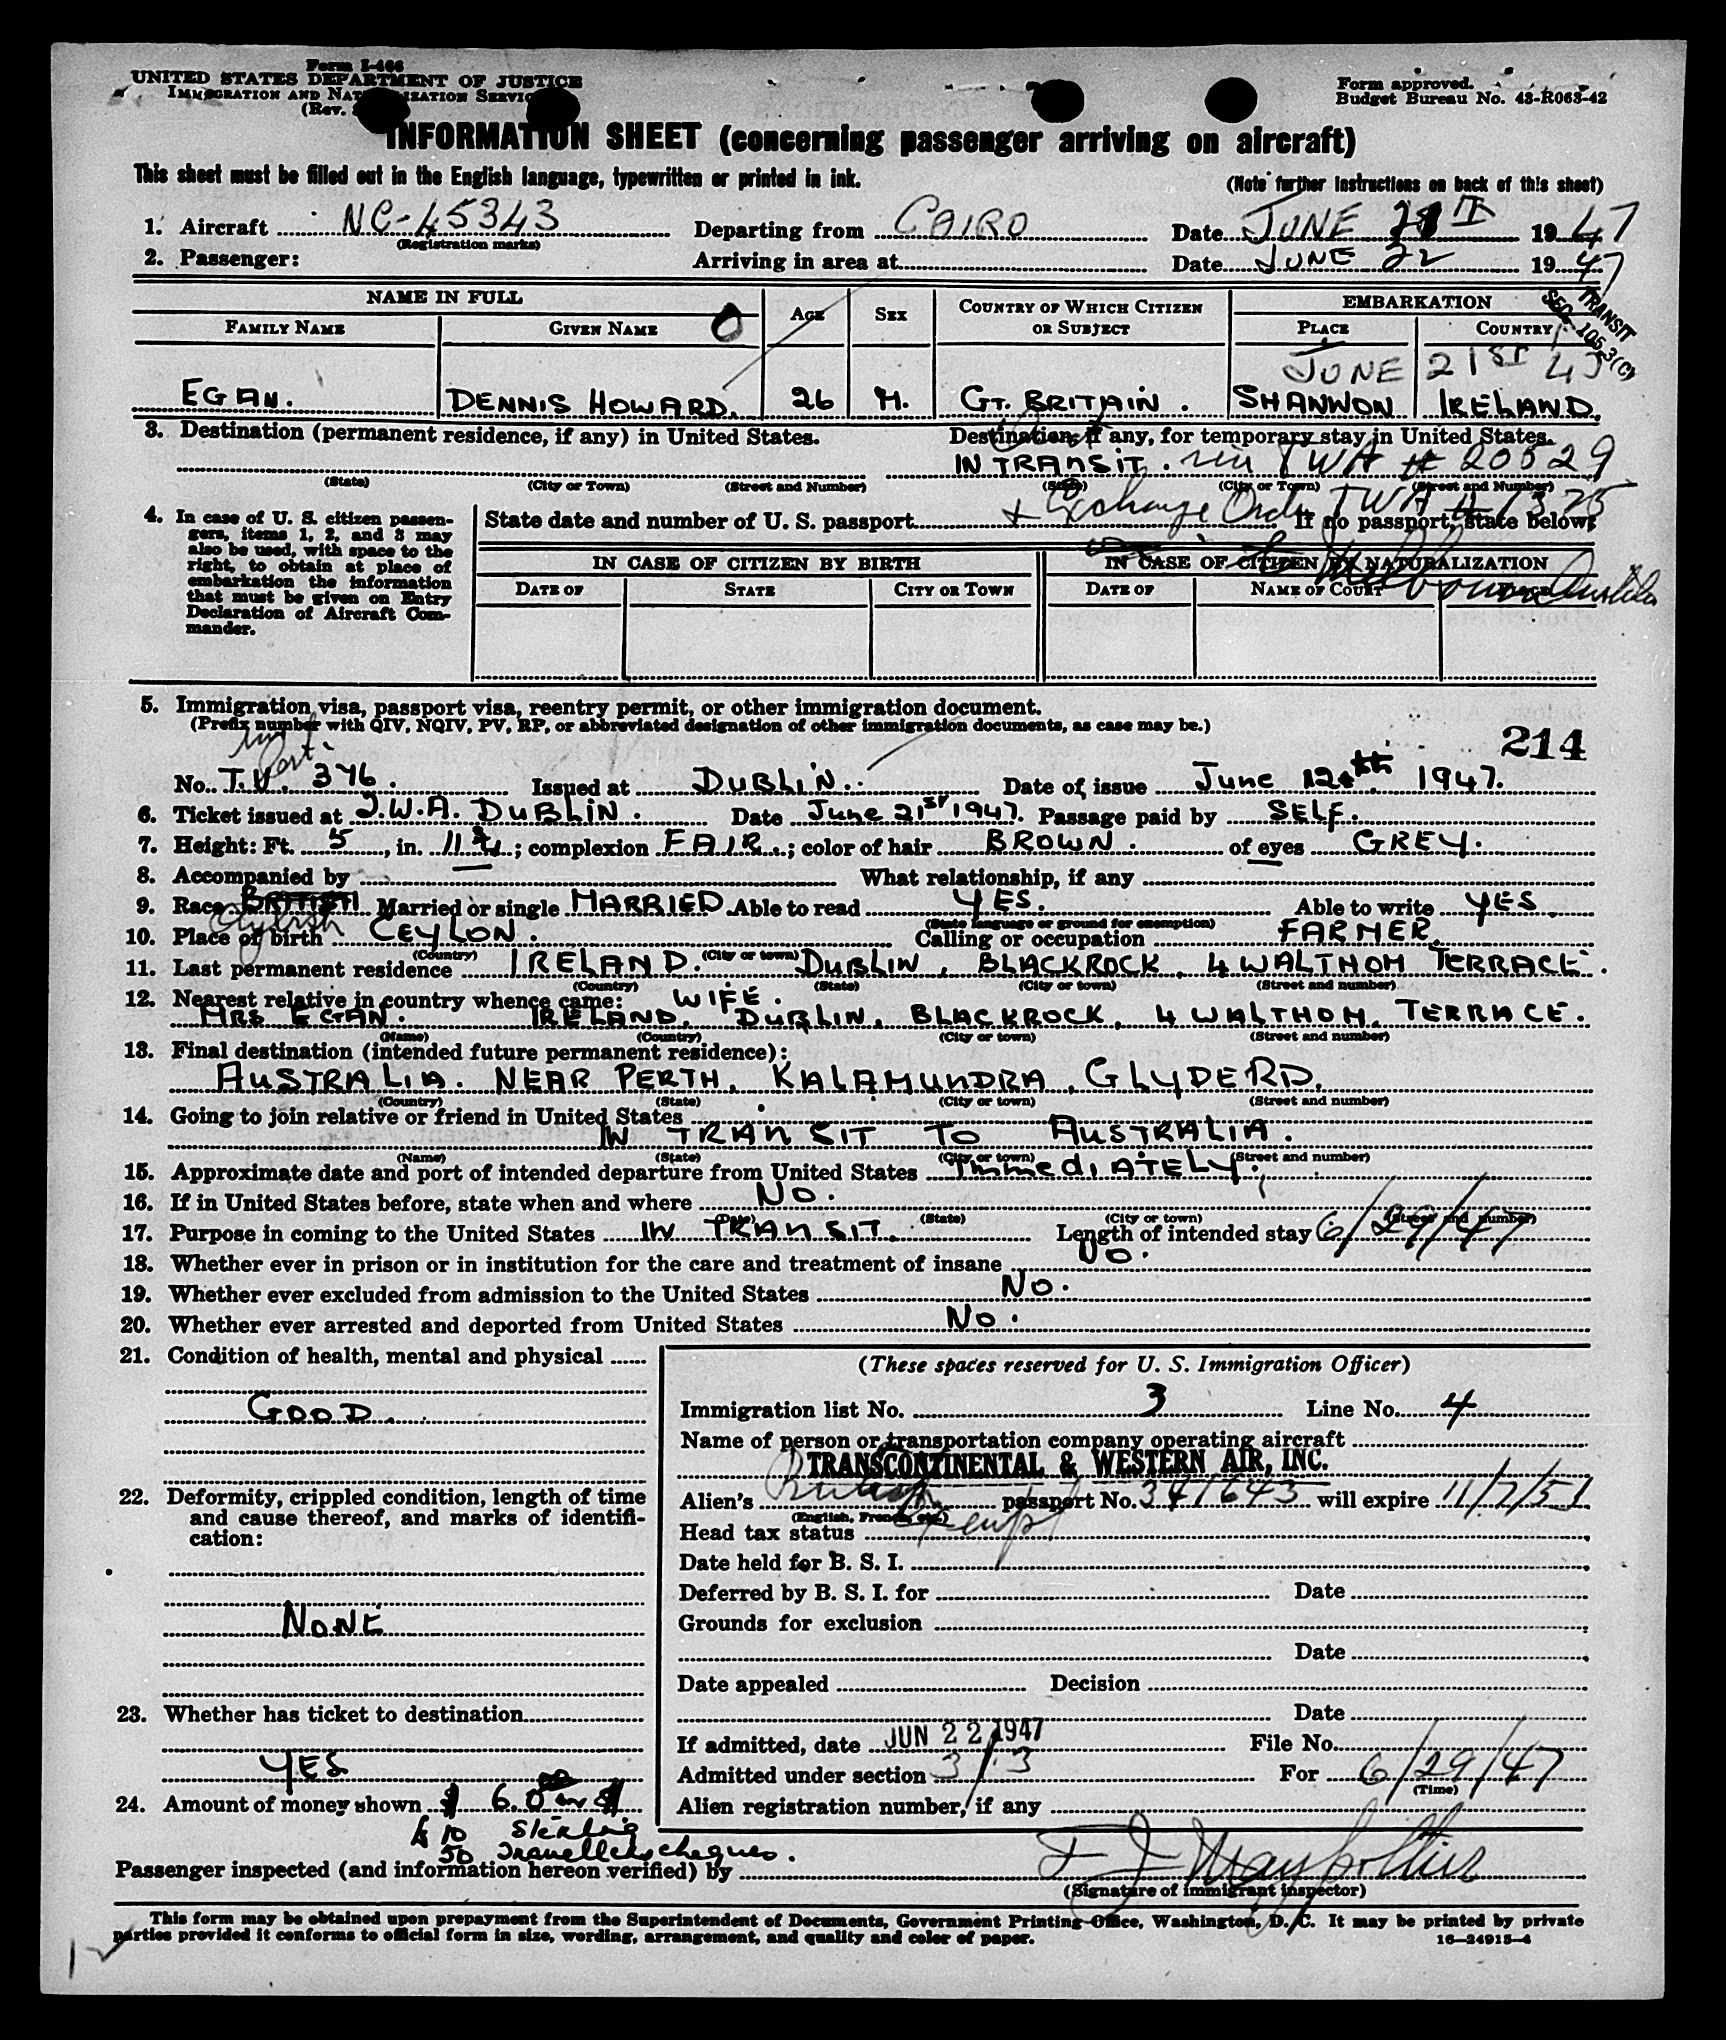 Form I-466
UNITED STATES DEPARTMENT OF JUSTICE
IMMIGRATION AND NATURALIZATION SERVICE
(Rev.
Form approved.
Budget Bureau No. 43-R063-42
INFORMATION SHEET (concerning passenger arriving on aircraft)
This sheet must be filled out in the English language, typewritten or printed in ink.
(Note further instructions on back of this sheet)
1. Aircraft NC-45343 Departing from CAIRO Date JUNE 21ST 1947
(Registration marks)
2. Passenger: Arriving in area at Date JUNE 22 1947
TRANSIT
SEC. 105.3(C)
NAME IN FULL AGE SEX COUNTRY OF WHICH CITIZEN OR SUBJECT EMBARKATION
FAMILY NAME GIVEN NAME O PLACE COUNTRY
JUNE 21ST 47
EGAN. DENNIS HOWARD. 26 M. GT. BRITAIN. SHANNON IRELAND.
3. Destination (permanent residence, if any) in United States. Destination, if any, for temporary stay in United States.
IN TRANSIT. via TWA # 20529
(State) (City or Town) (Street and Number) (State) (City or Town) (Street and Number)
+ Exchange Order TWA # 7375
4. In case of U. S. citizen passengers, items 1, 2, and 3 may also be used, with space to the right, to obtain at place of embarkation the information that must be given on Entry Declaration of Aircraft Commander.
State date and number of U. S. passport If no passport, state below:
to Melbourne Australia
IN CASE OF CITIZEN BY BIRTH IN CASE OF CITIZEN BY NATURALIZATION
DATE OF STATE CITY OR TOWN DATE OF NAME OF COURT PLACE
5. Immigration visa, passport visa, reentry permit, or other immigration document.
(Prefix number with QIV, NQIV, PV, RP, or abbreviated designation of other immigration documents, as case may be.)
214
No. T.V. 376. Issued at DUBLIN. Date of issue June 12th 1947.
6. Ticket issued at T.W.A. DUBLIN. Date June 21st 1947. Passage paid by SELF.
7. Height: Ft. 5, in. 11 3/4; complexion FAIR.; color of hair BROWN. of eyes GREY.
8. Accompanied by What relationship, if any
9. Race BRITISH Married or single MARRIED Able to read YES. Able to write YES.
(State language or ground for exemption)
10. Place of birth CEYLON. Calling or occupation FARMER.
(Country) (City or town)
11. Last permanent residence IRELAND. DUBLIN, BLACKROCK, 4 WALTHOM TERRACE.
(Country) (State) (City or town) (Street and number)
12. Nearest relative in country whence came: WIFE.
MRS EGAN. IRELAND. DUBLIN, BLACKROCK, 4 WALTHOM, TERRACE.
(Name) (Country) (City or town) (Street and number)
13. Final destination (intended future permanent residence):
AUSTRALIA. NEAR PERTH, KALAMUNDRA, GLYDE RD.
(Country) (State) (City or town) (Street and number)
14. Going to join relative or friend in United States
IN TRANSIT TO AUSTRALIA.
(Name) (State) (City or town) (Street and number)
15. Approximate date and port of intended departure from United States ImmediATELY.
16. If in United States before, state when and where NO.
(Date) (State) (City or town) (Street and number)
17. Purpose in coming to the United States IN TRANSIT. Length of intended stay 6/29/47
18. Whether ever in prison or in institution for the care and treatment of insane NO.
19. Whether ever excluded from admission to the United States NO.
20. Whether ever arrested and deported from United States NO.
21. Condition of health, mental and physical
GOOD.
22. Deformity, crippled condition, length of time and cause thereof, and marks of identification:
NONE
23. Whether has ticket to destination
YES
24. Amount of money shown $ 6.0
£ 10 Sterling
50 Travellers cheques.
(These spaces reserved for U. S. Immigration Officer)
Immigration list No. 3 Line No. 4
Name of person or transportation company operating aircraft
TRANSCONTINENTAL & WESTERN AIR, INC.
Alien's British passport No. 341643 will expire 11/7/51
(English, French, etc.)
Head tax status Exempt
Date held for B. S. I.
Deferred by B. S. I. for Date
Grounds for exclusion
Date
Date appealed Decision
Date
If admitted, date JUN 22 1947 File No.
Admitted under section 3/3 For 6/29/47
(Time)
Alien registration number, if any
Passenger inspected (and information hereon verified) by
(Signature of immigrant inspector)
This form may be obtained upon prepayment from the Superintendent of Documents, Government Printing Office, Washington, D. C. It may be printed by private
parties provided it conforms to official form in size, wording, arrangement, and quality and color of paper.
16—24915-4